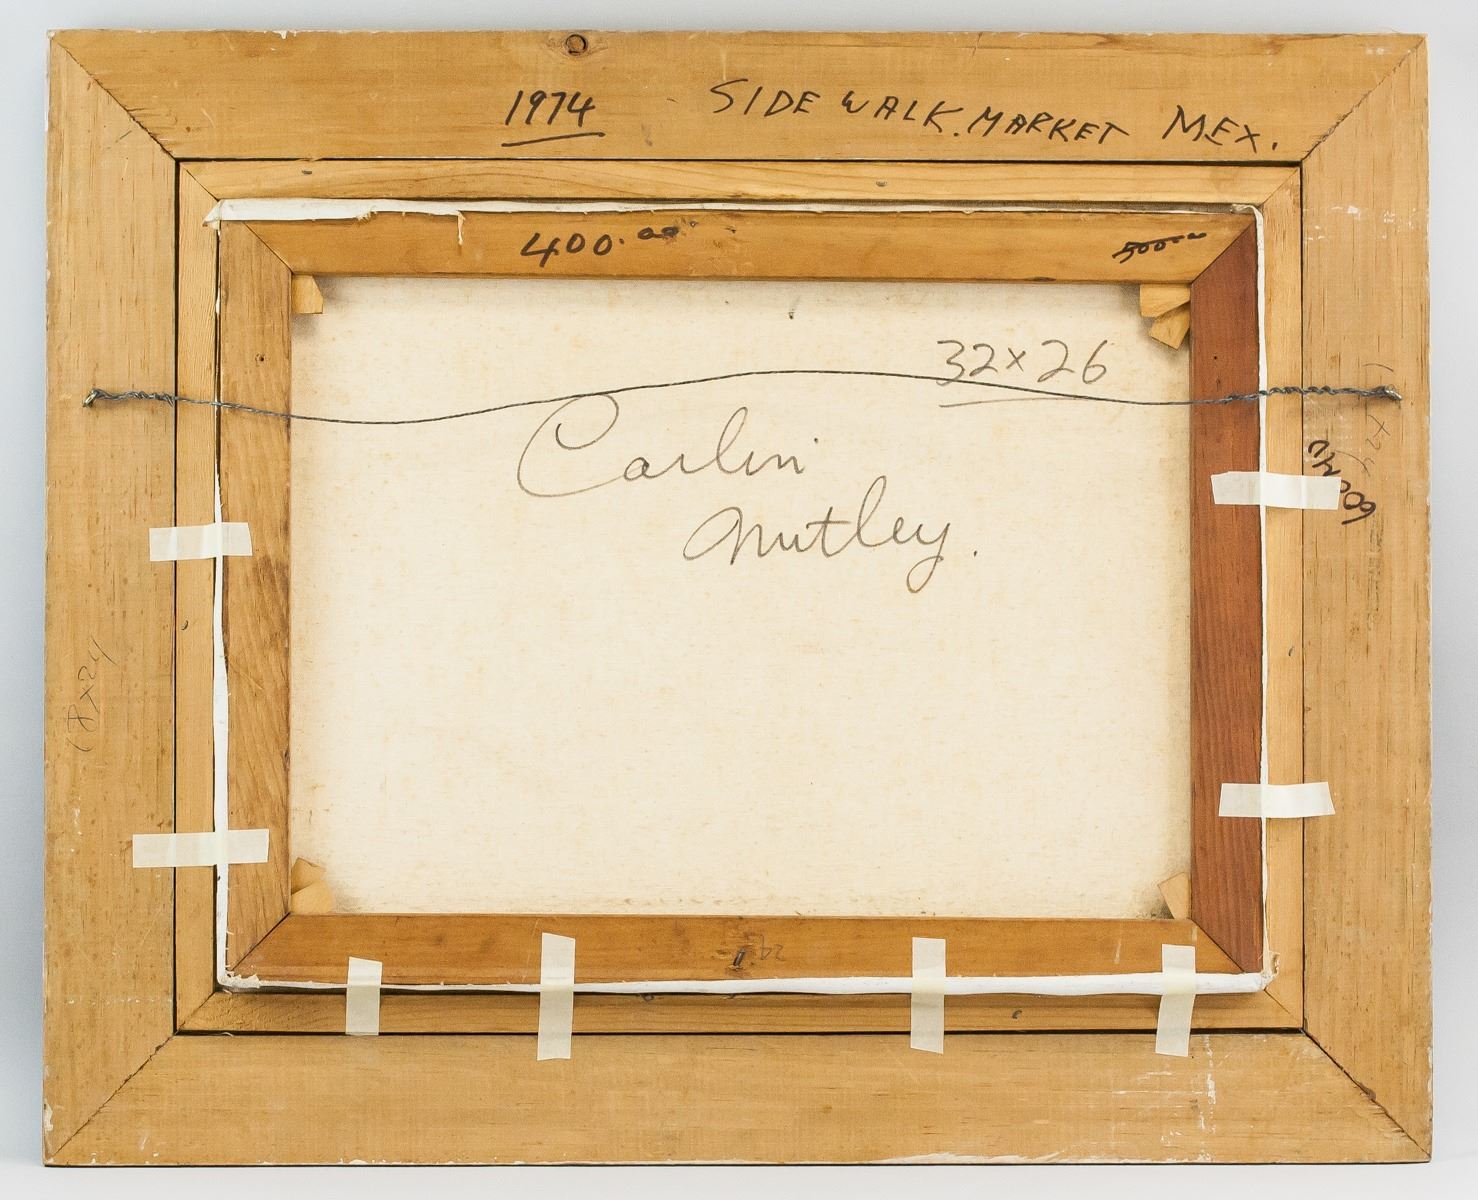 1974 SIDE WALK. MARKET MEX.
400.00
500.00
32x26
Carlin
Nutley.
18x24